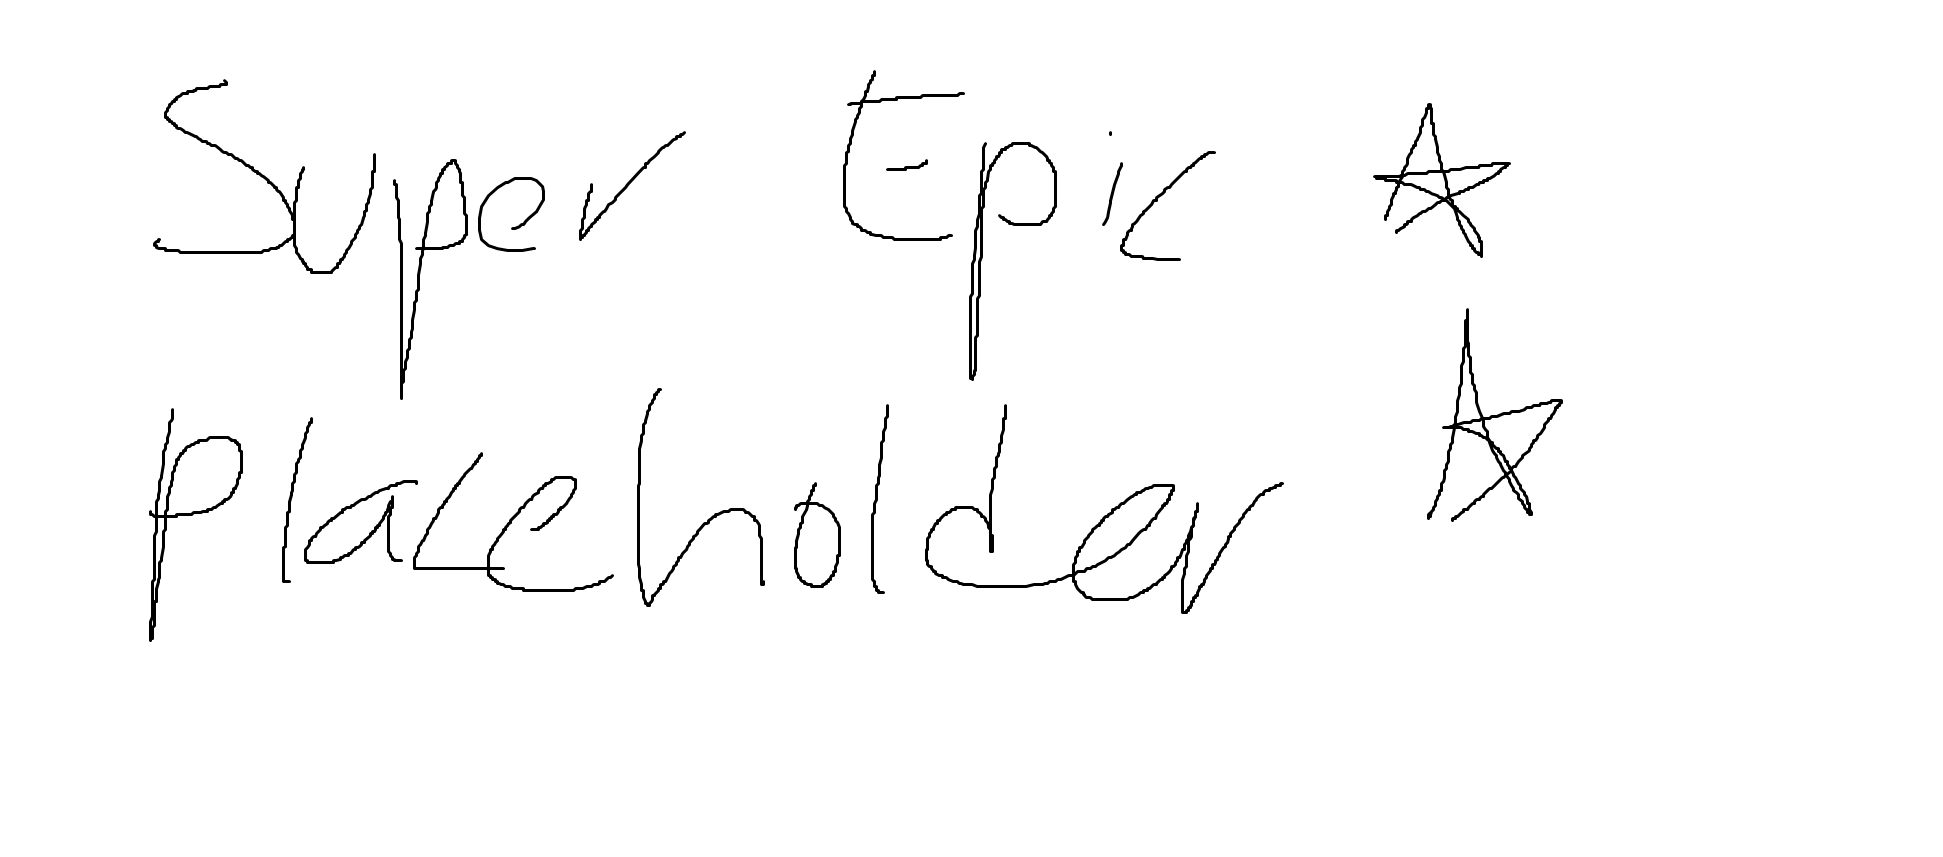 Super Epic
Placeholder